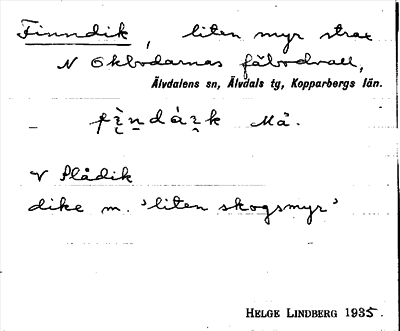 Finndik, liten myr strax
N Okbodarnas fäbodvall,
Älvdalens sn, Älvdals tg, Kopparbergs län.
Må.
V Plådik
dike m. 'liten skogsmyr'
HELGE LINDBERG 1935.